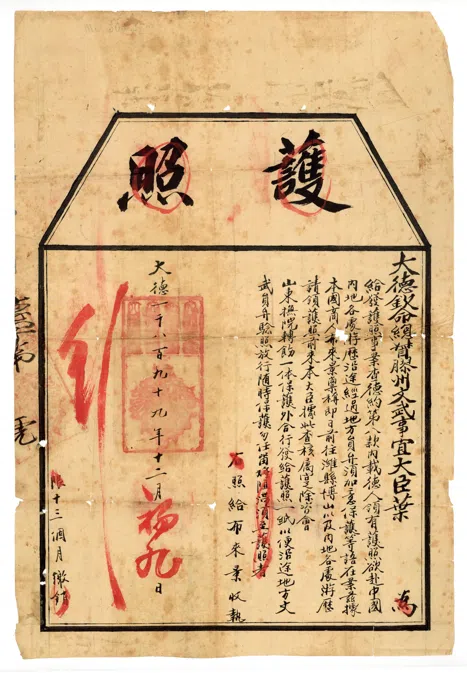 護照
大德欽命總督膠州文武事宜大臣葉 為
給發護照事案查德約第八款內載德人領有護照欲赴中國
內地各處游歷沿途經過地方員弁須加意保護等語在案茲據
本國商人布來業稟稱即日前往濰縣博山以及內地各處游歷
請領護照前來本大臣據此查核屬實除咨會
山東撫院轉飭一体保護外合行發給護照一紙以便沿途地方文
武員弁驗照放行隨時保護勿任留難阻滯須至護照者
右照給布來業收執
大德一千八百九十九年十二月初九日
限十三個月繳銷
第 號